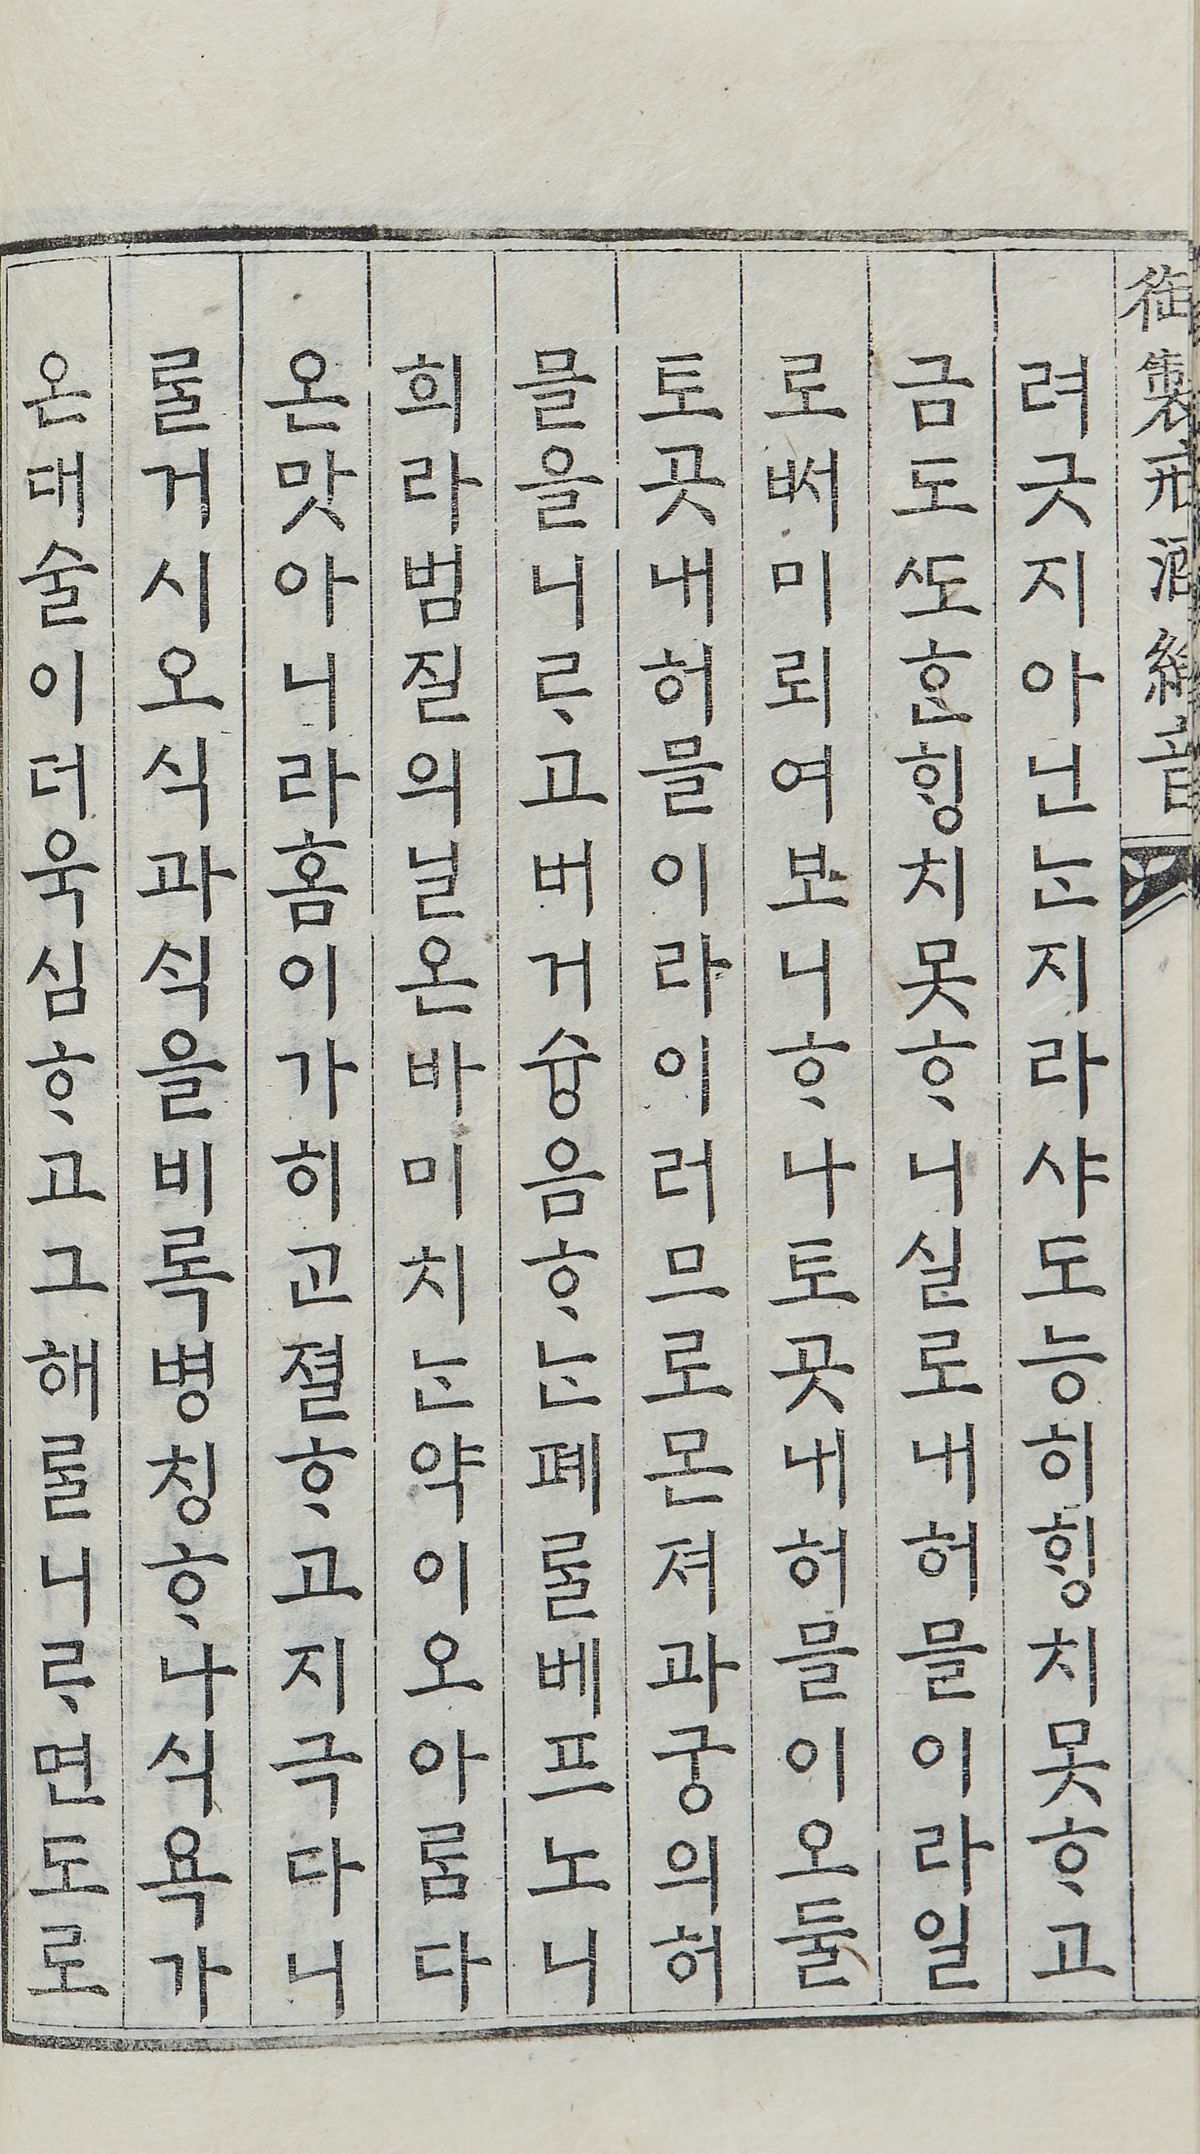 御製戒酒綸音
려긋지아닌ᄂᆞᆫ지라샤도능히ᄒᆡᆼ치못ᄒᆞ고
금도ᄯᅩᄒᆞᆫᄒᆡᆼ치못ᄒᆞ니실로내허믈이라일
로ᄡᅥ미뢰여보니ᄒᆞ나토곳내허믈이오둘
토곳내허믈이라이러므로몬져과궁의허
믈을니ᄅᆞ고버거슝음ᄒᆞᄂᆞᆫ폐ᄅᆞᆯ베프노니
희라범질의닐온바미치ᄂᆞᆫ약이오아ᄅᆞᆷ다
온맛아니라홈이가히ᄀᆞᆫ졀ᄒᆞ고지극다니
ᄅᆞᆯ거시오식과ᄉᆡᆨ을비록병칭ᄒᆞ나식욕가
온대술이더욱심ᄒᆞ고그해ᄅᆞᆯ니ᄅᆞ면도로